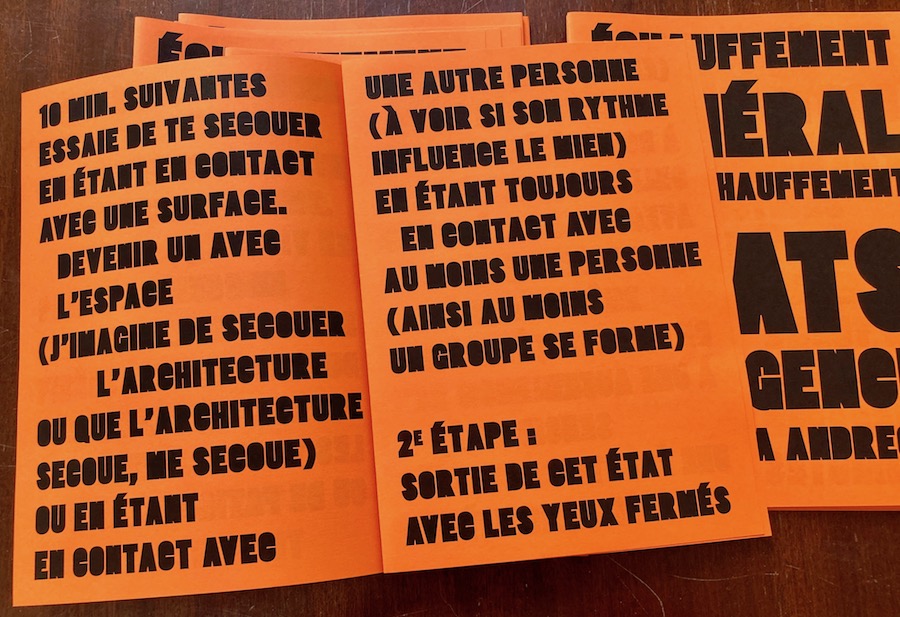 10 MIN. SUIVANTES
ESSAIE DE TE SECOUER
EN ÉTANT EN CONTACT
AVEC UNE SURFACE.
DEVENIR UN AVEC
L'ESPACE
(J'IMAGINE DE SECOUER
L'ARCHITECTURE
OU QUE L'ARCHITECTURE
SECOUE, ME SECOUE)
OU EN ÉTANT
EN CONTACT AVEC
UNE AUTRE PERSONNE
(À VOIR SI SON RYTHME
INFLUENCE LE MIEN)
EN ÉTANT TOUJOURS
EN CONTACT AVEC
AU MOINS UNE PERSONNE
(AINSI AU MOINS
UN GROUPE SE FORME)
2E ÉTAPE :
SORTIE DE CET ÉTAT
AVEC LES YEUX FERMÉS
ÉCHAUFFEMENT